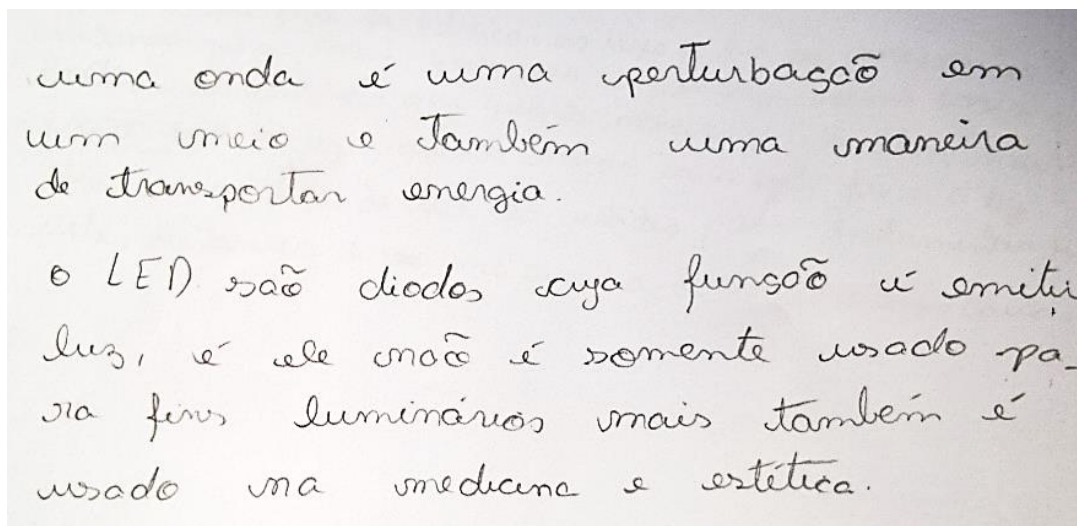 uma onda é uma perturbação em
um meio e também uma maneira
de transportar energia.
o LED são diodos cuja função é emitir
luz, é ele não é somente usado pa-
ra fins luminários mais também é
usado na medicina e estética.